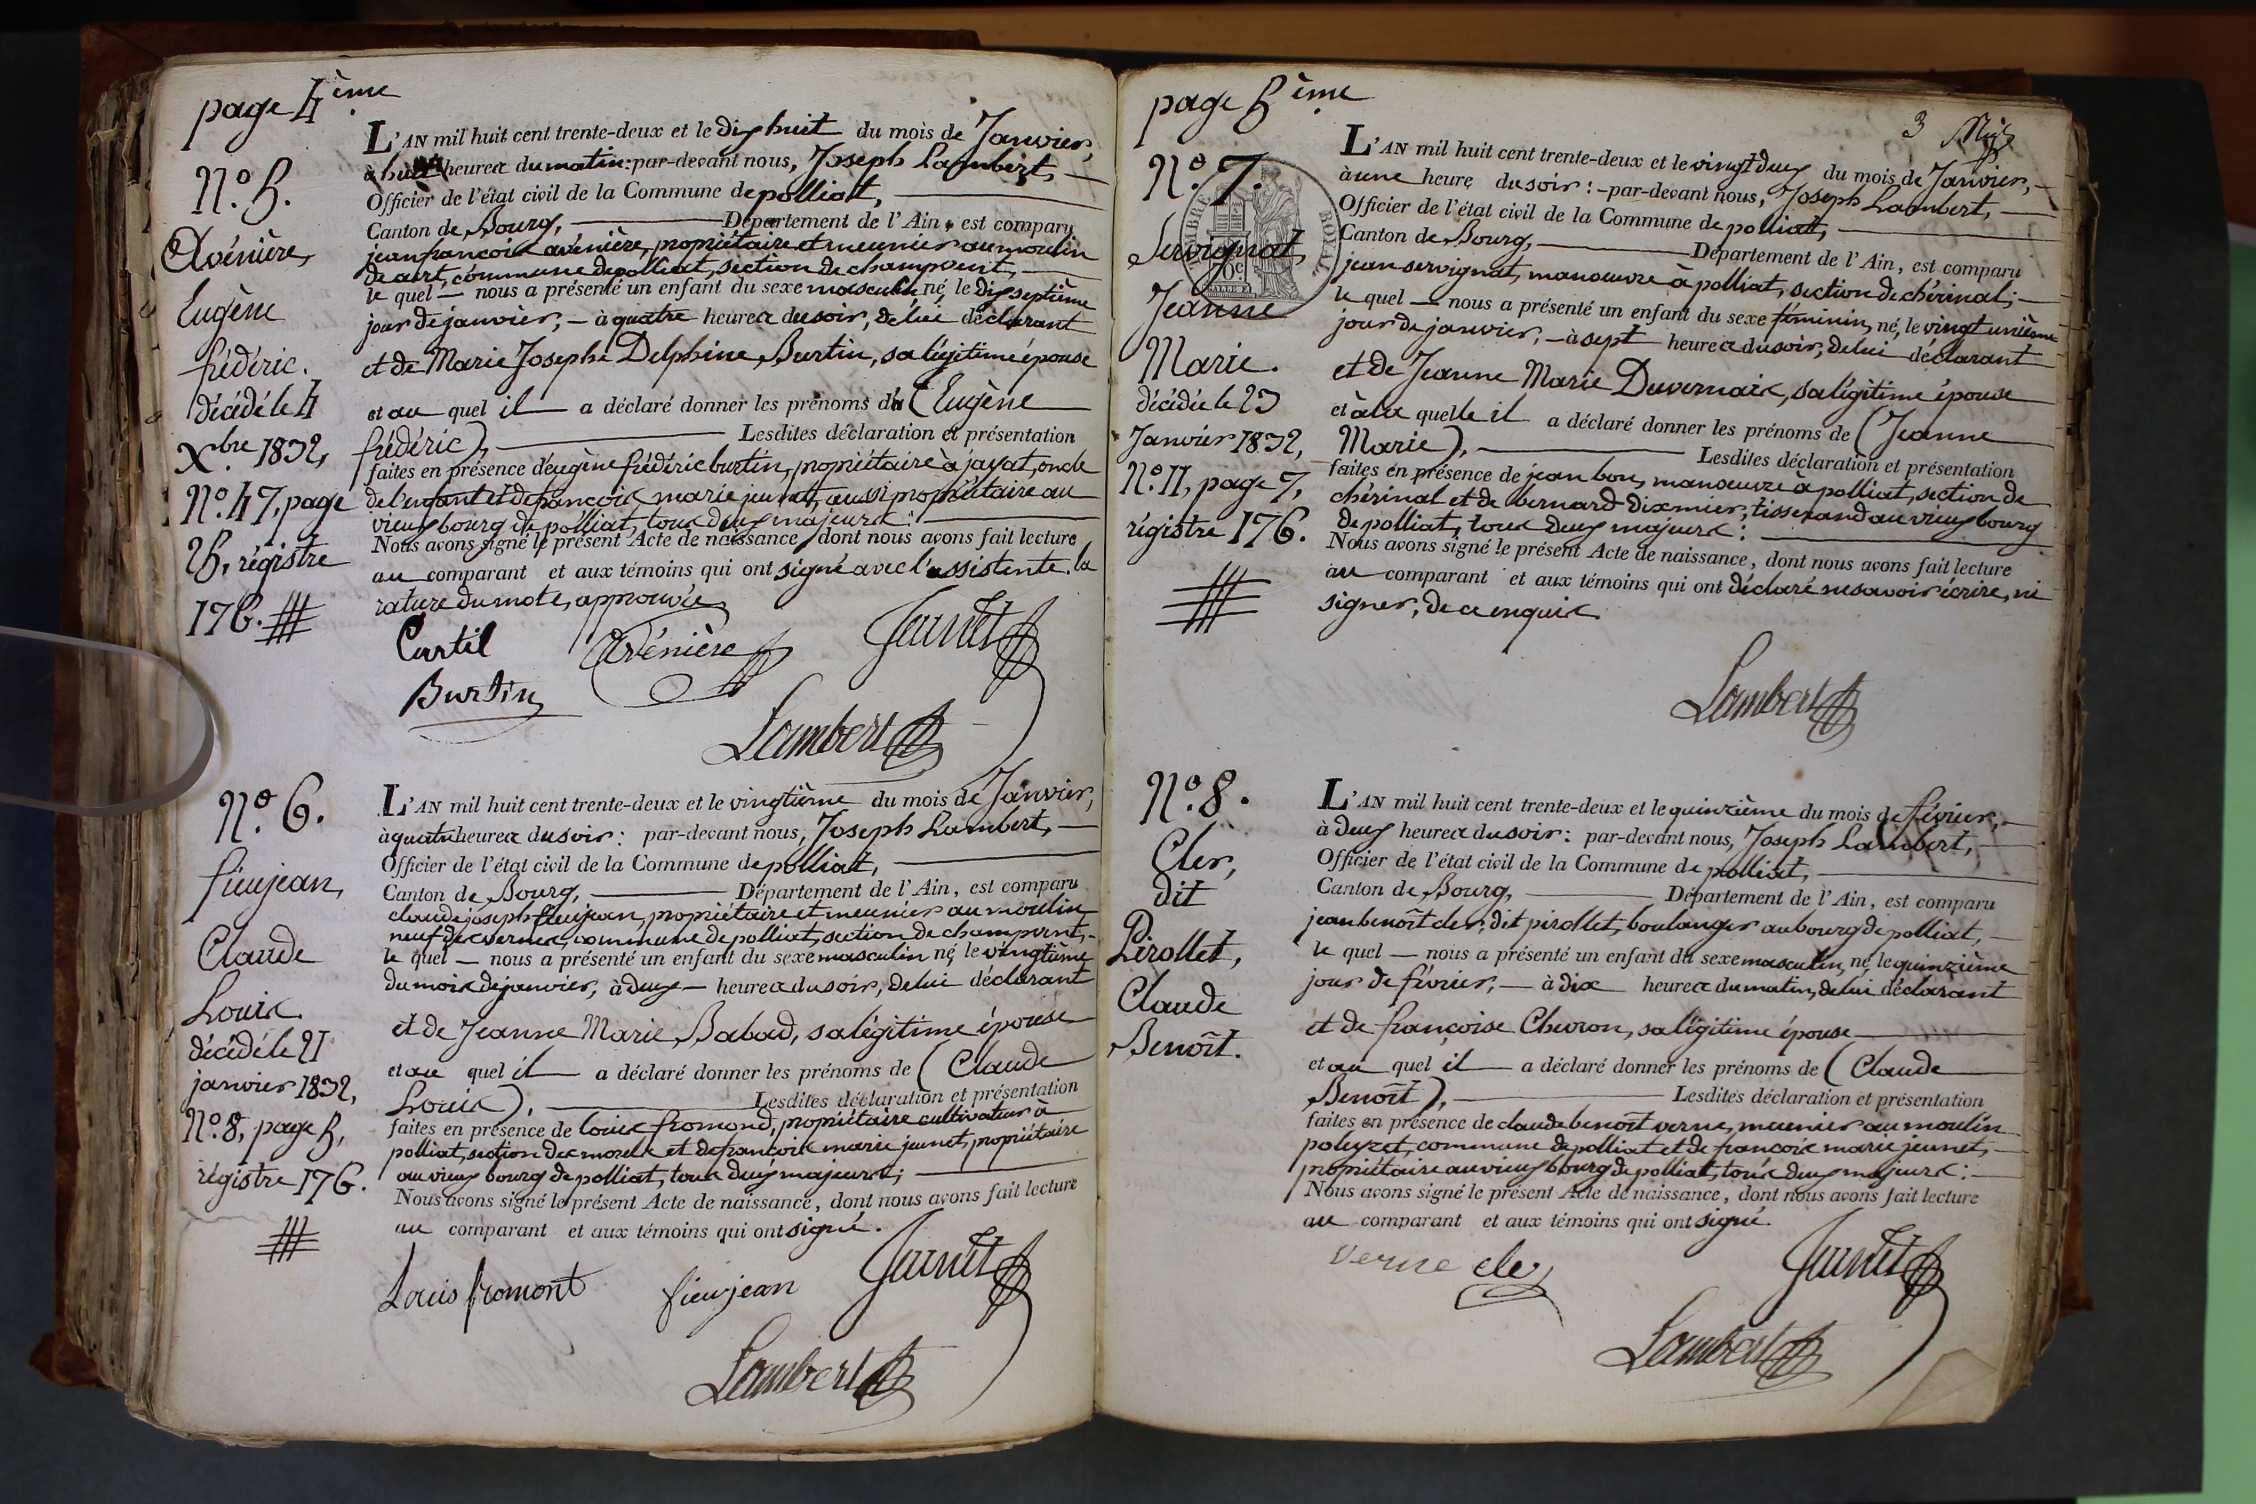 page 4ème
N.o 5.
Avénière,
Eugène
frédéric.
décédé le 4
Xbre 1832,
N.o 47, page
25, régistre
176.
L'AN mil huit cent trente-deux et le dix huit du mois de Janvier,
à huit heures du matin: par-devant nous, Joseph Lambert,
Officier de l'état civil de la Commune de polliat,
Canton de Bourg, Département de l'Ain, est comparu
jean françois avénière, propriétaire et meunier au moulin
de curt, commune de polliat, section de champvent,
le quel nous a présenté un enfant du sexe masculin né, le dix septième
jour de janvier, à quatre heures du soir, de lui déclarant
et de Marie Josephe Delphine Burtin, sa légitime épouse
et au quel il a déclaré donner les prénoms de (Eugène
frédéric), Lesdites déclaration et présentation
faites en présence d'eugène frédéric burtin, propriétaire à jayat, oncle
de l'enfant et de françois marie jeunet, aussi propriétaire au
vieux bourg de polliat, tous deux majeurs:
Nous avons signé le présent Acte de naissance dont nous avons fait lecture
au comparant et aux témoins qui ont signé avec l'assistente. la
rature du mote, approuvée.
Curtil Avénière Jeunet
Burtin
Lambert
N.o 6.
fieujean,
Claude
Louis.
décédé le 21
janvier 1832,
N.o 8, page 5,
régistre 176.
L'AN mil huit cent trente-deux et le vingtième du mois de Janvier,
à quatre heures du soir: par-devant nous, Joseph Lambert,
Officier de l'état civil de la Commune de polliat,
Canton de Bourg, Département de l'Ain, est comparu
claude joseph fieujean, propriétaire et meunier au moulin
neuf des vernes, commune de polliat, section de champvent,
le quel nous a présenté un enfant du sexe masculin né, le vingtième
du mois de janvier, à deux heures du soir, de lui déclarant
et de Jeanne Marie Babad, sa légitime épouse
et au quel il a déclaré donner les prénoms de (Claude
Louis), Lesdites déclaration et présentation
faites en présence de louis fromond, propriétaire cultivateur à
polliat, section des morels et de françois marie jeunet, propriétaire
au vieux bourg de polliat, tous deux majeurs;
Nous avons signé le présent Acte de naissance, dont nous avons fait lecture
au comparant et aux témoins qui ont signé.
Louis fromont fieujean Jeunet
Lambert
page 5ème
3
N.o 7.
TIMBRE ROYAL
Servignat
Jeanne
Marie.
décédée le 23
Janvier 1832,
N.o 11, page 7,
régistre 176.
L'AN mil huit cent trente-deux et le vingt deux du mois de Janvier,
à une heure du soir: par-devant nous, Joseph Lambert,
Officier de l'état civil de la Commune de polliat,
Canton de Bourg, Département de l'Ain, est comparu
jean servignat, manoeuvre à polliat, section de chérinal;
le quel nous a présenté un enfant du sexe féminin, né, le vingt unième
jour de janvier, à sept heures du soir, de lui déclarant
et de Jeanne Marie Duvernais, sa légitime épouse
et à la quelle il a déclaré donner les prénoms de (Jeanne
Marie), Lesdites déclaration et présentation
faites en présence de jean bon, manoeuvre à polliat, section de
chérinal et de bernard dixmier, tisserand au vieux bourg
de polliat, tous deux majeurs:
Nous avons signé le présent Acte de naissance, dont nous avons fait lecture
au comparant et aux témoins qui ont déclaré ne savoir écrire, ni
signer, de ce enquis.
Lambert
N.o 8.
Cler,
dit
Pirollet,
Claude
Benoît.
L'AN mil huit cent trente-deux et le quinzième du mois de février,
à deux heures du soir: par-devant nous, Joseph Lambert,
Officier de l'état civil de la Commune de polliat,
Canton de Bourg, Département de l'Ain, est comparu
jean benoît cler, dit pirollet, boulanger au bourg de polliat,
le quel nous a présenté un enfant du sexe masculin, né, le quinzième
jour de février, à dix heures du matin, de lui déclarant
et de françoise Chevron, sa légitime épouse
et au quel il a déclaré donner les prénoms de (Claude
Benoît), Lesdites déclaration et présentation
faites en présence de claude benoît verne, meunier au moulin
polezet, commune de polliat et de françois marie jeunet,
propriétaire au vieux bourg de polliat, tous deux majeurs:
Nous avons signé le présent Acte de naissance, dont nous avons fait lecture
au comparant et aux témoins qui ont signé.
verne cler Jeunet
Lambert